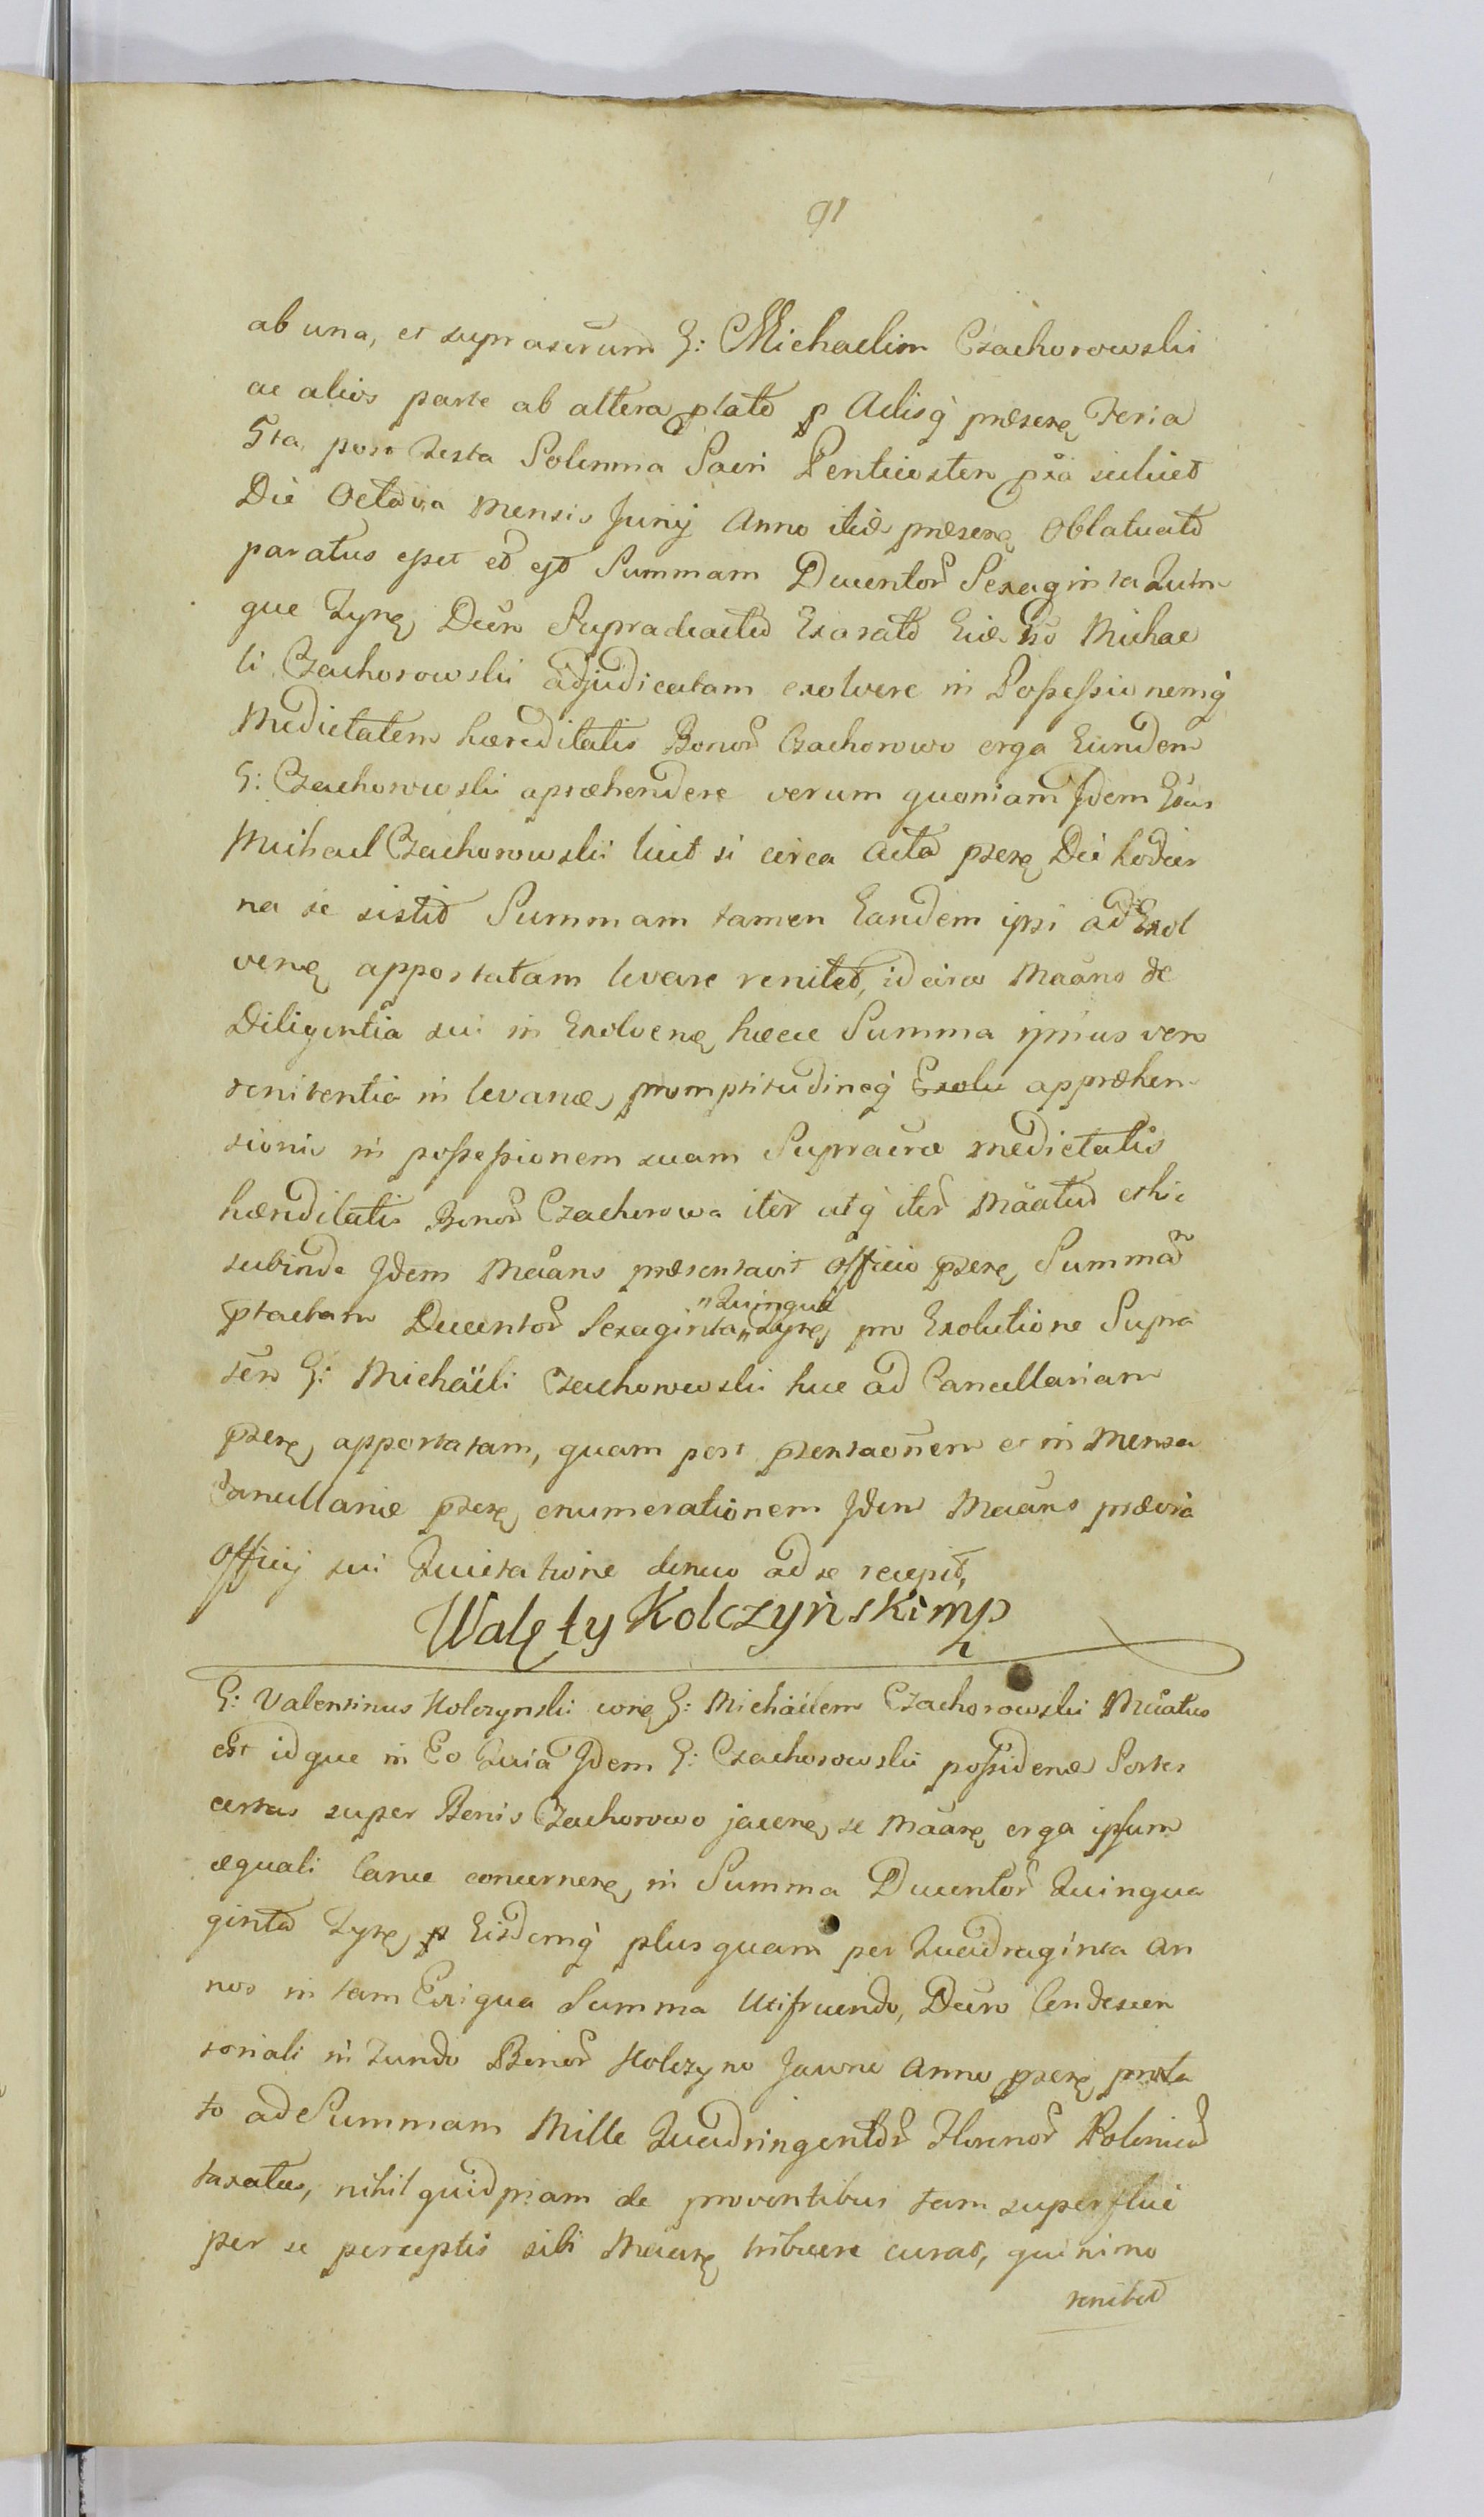 91
ab una, et suprascrum G: Michaelem Czachorowski
ac alios parte ab altera ptato p Actisq̀ præsenę Feria
5ta post Festa Solenna Sacri Pentecosten pxa scilicet
Die Octava Mensis Junij Anno itid præsenę Oblatuatd
paratus esset ed est Summam Ducentor Sexaginta Quin
que Tynę Decro Supradicacted Exarato Eid Gso Michae
li Czachorowski adjudicatam exolvere in Possessionemq̀
Medietatem hæreditatis Bonor Czachorowo erga Eundem
G: Czachorowski apræhendere verum quoniam Idem Gsus
Michael Czachorowski licet si circa Acta psenę Die hodier
na se sistit Summam tamen Eandem ipsi ad Exol
venę apportatam levare renitet, idcirco Maans de
Diligentia sui in Exolvenę hacce Summa ipsius vero
renitentia in levanę, promptitudineq̀ Exolu appræhen
sionis in possessionem suam Supracræ medietatis
hæreditatis Bonor Czachorowa iter atq̀ iter Maatud et hic
subinde Idem Maans præsentavit Officio psenę Summam
ptactam Ducentor Sexaginta „Quinque„ Tynę, pro Exolutione Supra
sen G: Michaëli Czachorowski huc ad Cancellariam
psenę, apportatam, quam post psentaonem et in Mensa
Cancellariæ psenę enumerationem Idem Maans prævia
Officij sui Quietatione denuo ad se recepit,
Walęty Kolczyński mp
G: Valentinus Kolczynski conę G: Michaëlem Czachorowski Maatus
est idque in Eo Quia Idem G: Czachorowski possidenę Sortes
certas super Bonis Czachorowo jacenę, se Maanę erga ipsum
æquali lance concernenę, in Summa Ducentor Quinqua
ginta Tynę, p Eisdemq̀ plusquam per Quadraginta An
nos in tam Exigua Summa Utifruendo, Decro Condescen
soriali in Fundo Bonor Kolczyno Jawne Anno psenę prola
to ad Summam Mille Quadringentor Florenor Polonical
taxatas, nihil quidpiam de proventibus tam superflue
per se perceptis sibi Maanę tribuere curat, quinimo
renitet